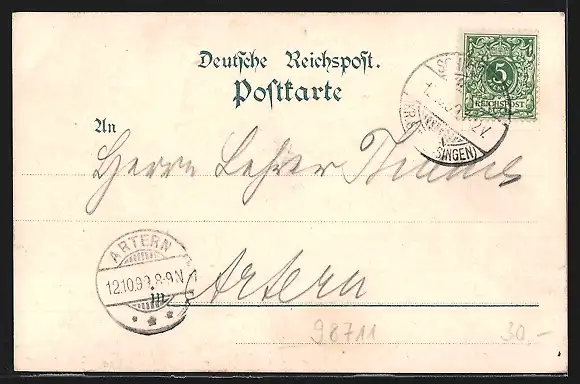 Deutsche Reichspost.
Postkarte
5
REICHSPOST
SINGEN)
An
Herrn Lehrer
ARTERN
12.10.99.8-9N
in Artern
98711
30,-